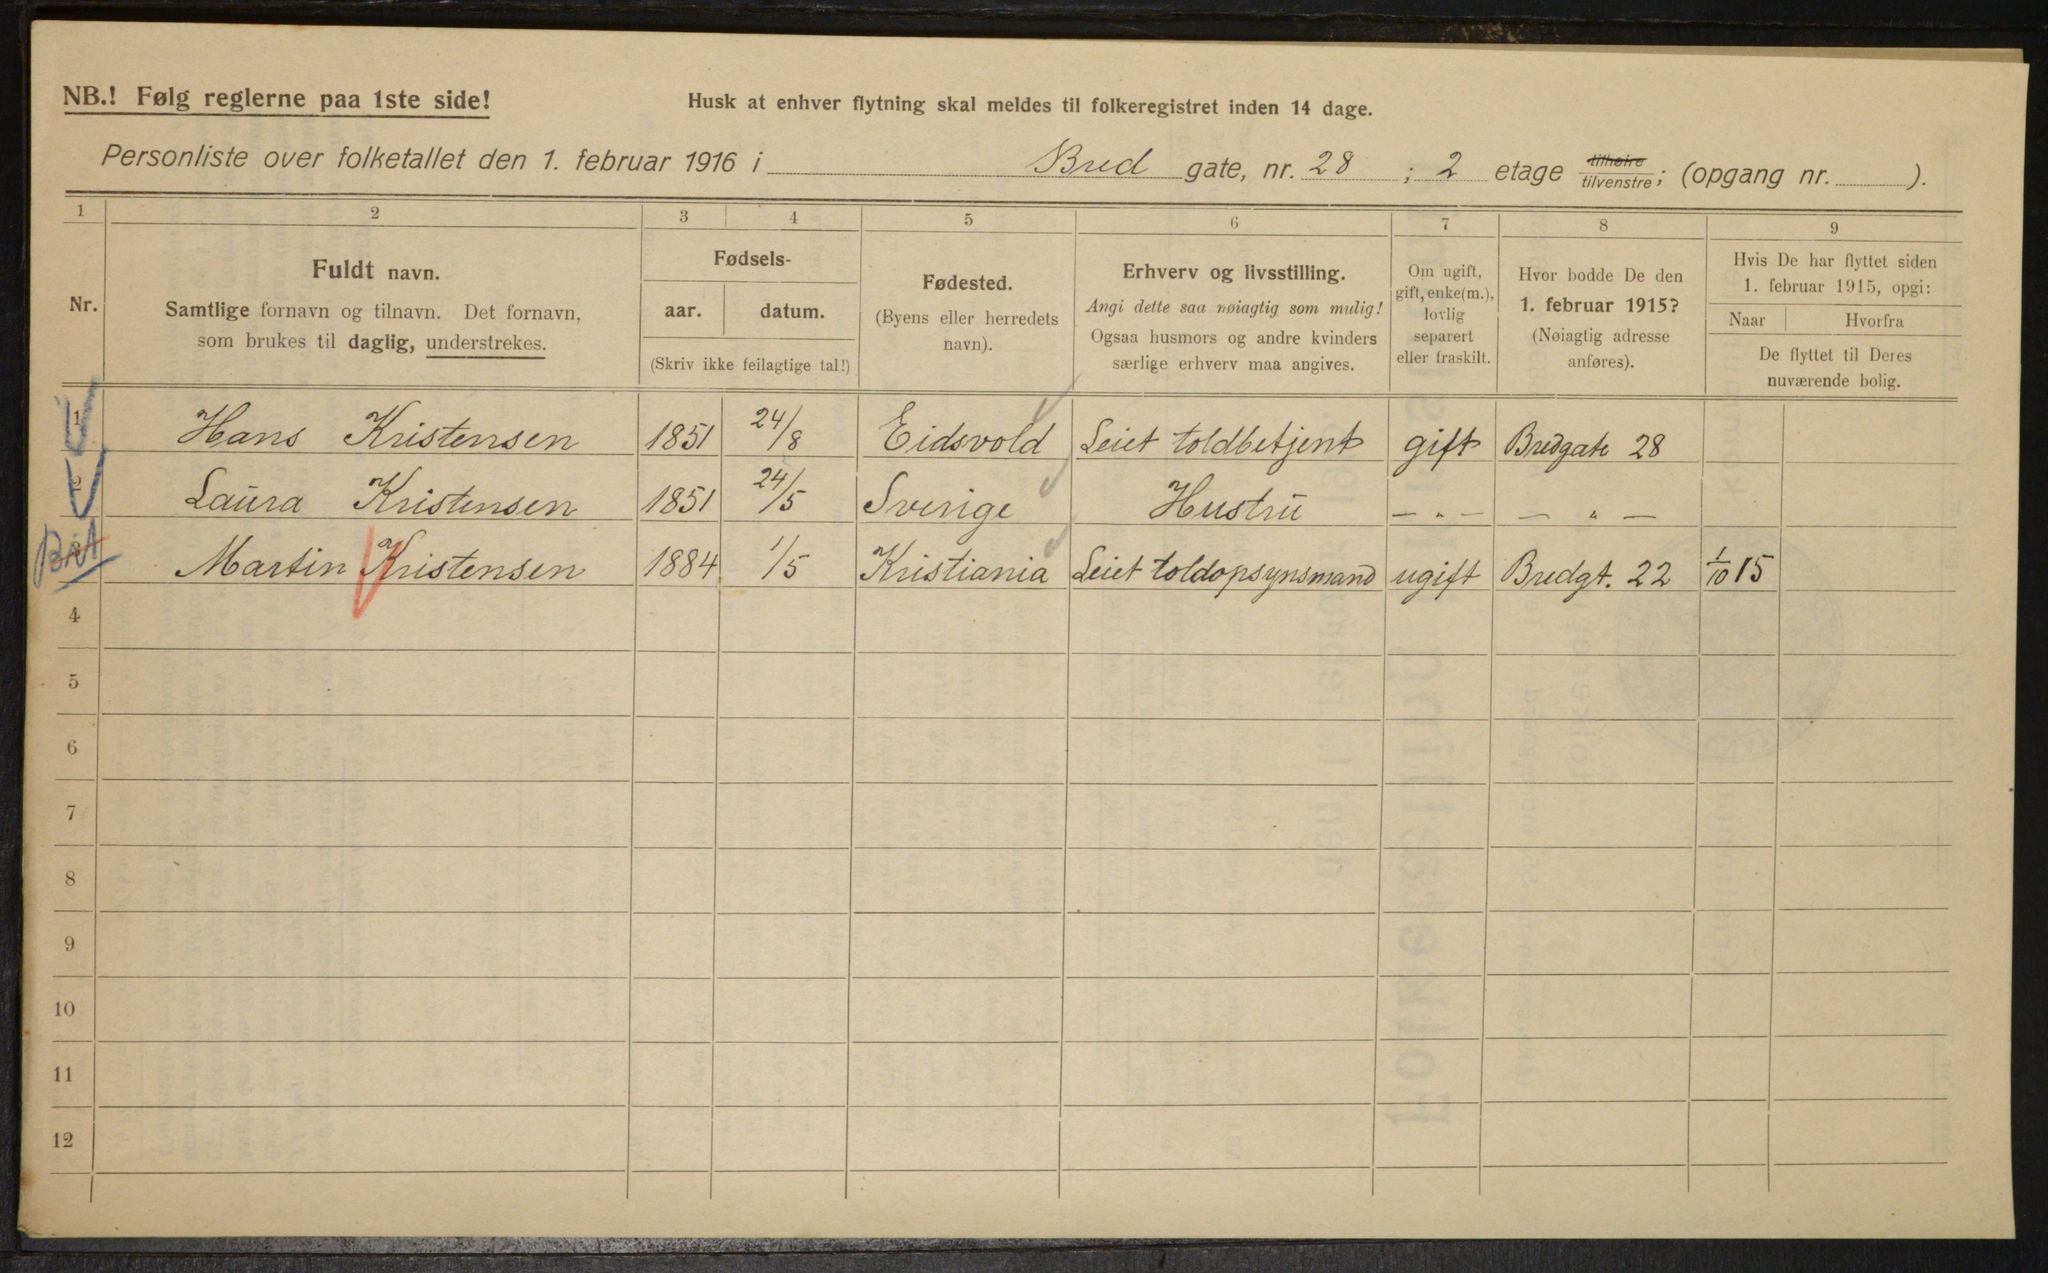 NB.! Følg reglerne paa 1ste side!
Husk at enhver flytning skal meldes til folkeregistret inden 14 dage.
Personliste over folketallet den 1. februar 1916 i Bred gate, nr. 28 ; 2 etage tilhøire tilvenstre; (opgang nr. ).
1 2 3 4 5 6 7 8 9
Nr.
Fuldt navn.
Samtlige fornavn og tilnavn. Det fornavn,
som brukes til daglig, understrekes.
Fødsels-
aar. datum.
(Skriv ikke feilagtige tal!)
Fødested.
(Byens eller herredets
navn).
Erhverv og livsstilling.
Angi dette saa nøiagtig som mulig!
Ogsaa husmors og andre kvinders
særlige erhverv maa angives.
Om ugift,
gift, enke(m.),
lovlig
separert
eller fraskilt.
Hvor bodde De den
1. februar 1915?
(Nøiagtig adresse
anføres).
Hvis De har flyttet siden
1. februar 1915, opgi:
Naar Hvorfra
De flyttet til Deres
nuværende bolig.
1 Hans Kristensen 1851 24/8 Eidsvold Leiet toldbetjent gift Bredgate 28
2 Laura Kristensen 1851 24/5 Sverige Hustru — " — — " —
3 Martin Kristensen 1884 1/5 Kristiania Leiet toldopsynsmand ugift Bredgt. 22 1/10 15
4
5
6
7
8
9
10
11
12